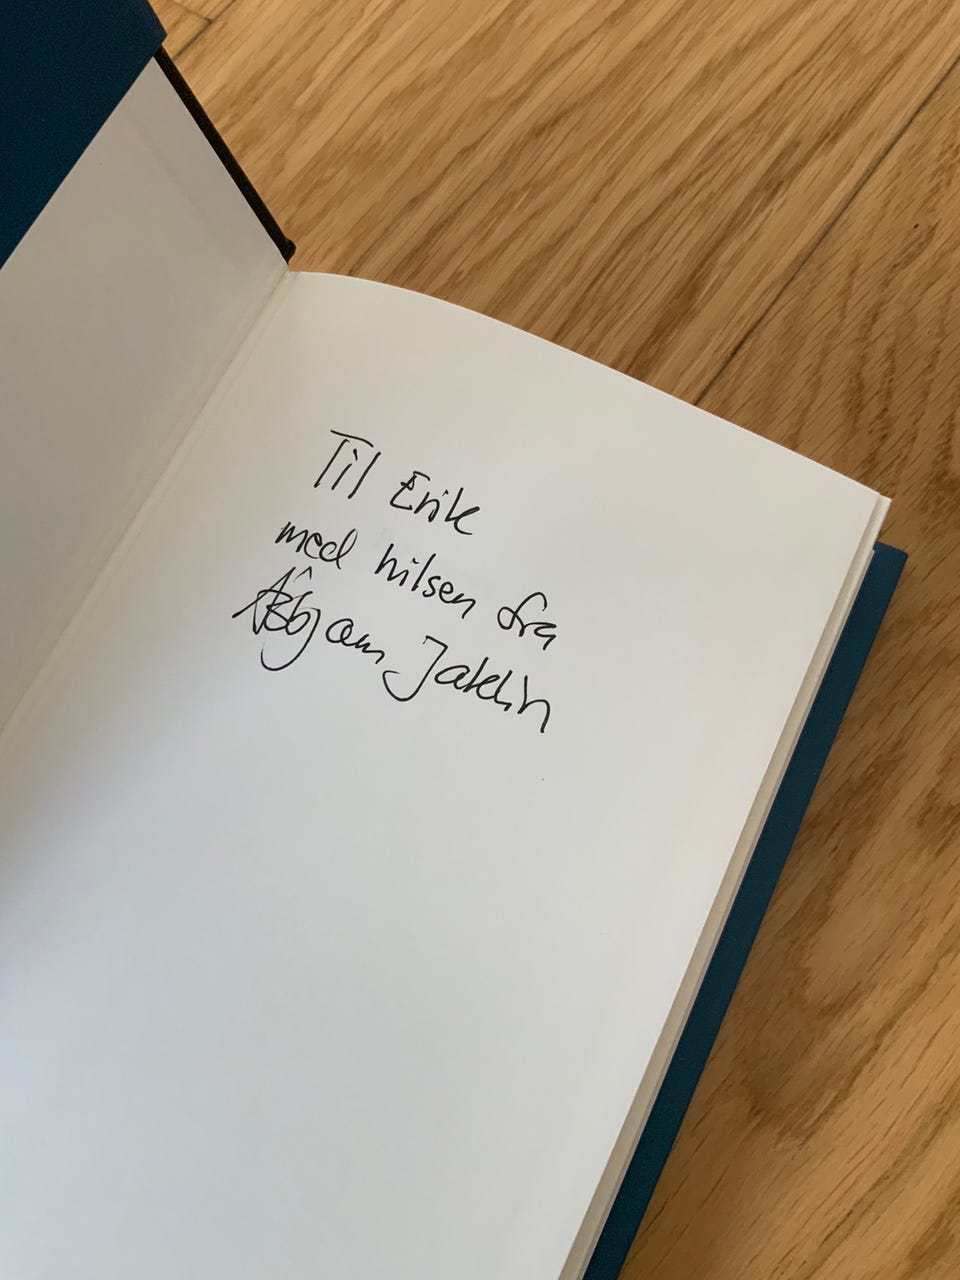 Til Erik
med hilsen fra
Asbjørn Jaklin